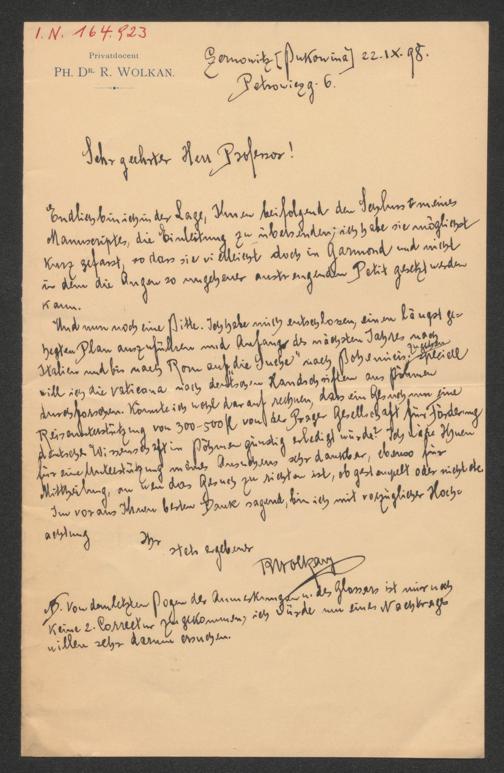 I.N. 164.923
Privatdocent
PH. DR. R. WOLKAN.
Czernowitz [Bukowina] 22.IX.98.
Petrowiczg. 6.
Sehr geehrter Herr Professor!
Endlich bin ich in der Lage, Ihnen beifolgend den Schluss meines
Manuscriptes, die Einleitung zu übersenden; ich habe sie möglichst
kurz gefasst, so dass sie vielleicht doch in Garmond und nicht
in dem die Augen so ungeheuer anstrengenden Petit gesetzt werden
kann.
Und nun noch eine Bitte. Ich habe mich entschlossen, einen längst ge-
hegten Plan auszuführen und Anfangs des nächsten Jahres nach
Italien und bis nach Rom auf die Suche nach Bohemicis zu gehen speciell
will ich die Vaticana nach deutschen Handschriften aus Böhmen
durchforschen. Könnte ich wohl darauf rechnen, dass ein Gesuch um eine
Reiseunterstützung von 300-500 fl von der Prager Gesellschaft für Förderung
deutscher Wissenschaft in Böhmen günstig erledigt würde? Ich wäre Ihnen
für eine Unterstützung meines Ansuchens sehr dankbar, ebenso für
Mittheilung, an wen das Gesuch zu richten ist, ob gestempelt oder nicht etc
Im voraus Ihnen besten Dank sagend, bin ich mit vorzüglicher Hoch-
achtung
Ihr
stets ergebener
RWolkan
NB. Von dem letzten Bogen der Anmerkungen u. des Glossars ist mir noch
keine 2. Correctur zugekommen; ich würde um eines Nachtrags
willen sehr darum ersuchen.